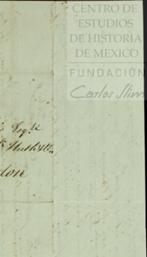 CENTRO DE
ESTUDIOS
DE HISTORIA
DE MEXICO
FUNDACIÓN
Carlos Slim
Esqre
don